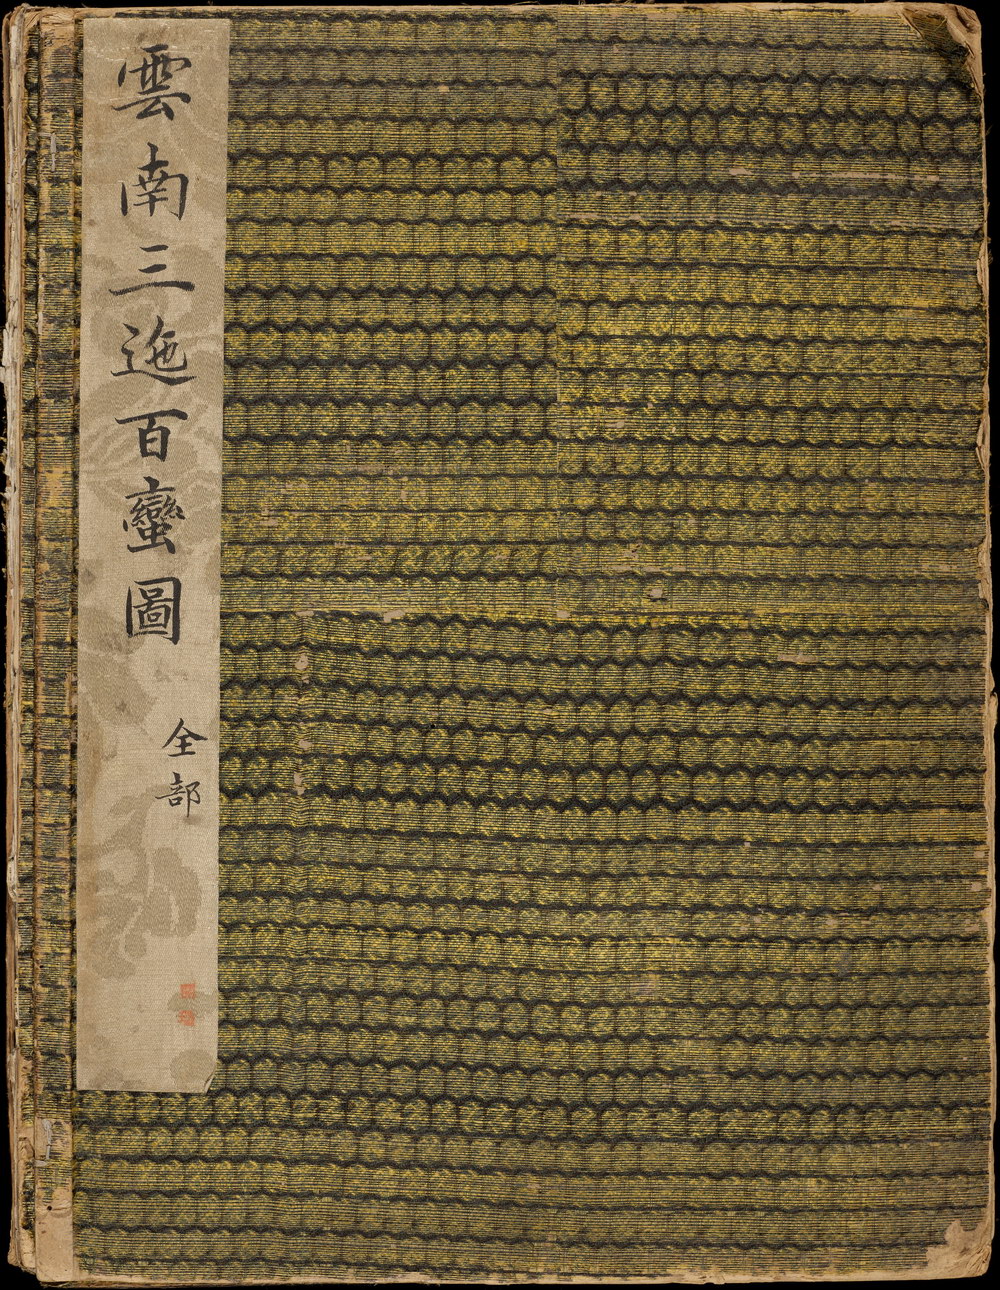 雲南三迤百蠻圖
全部